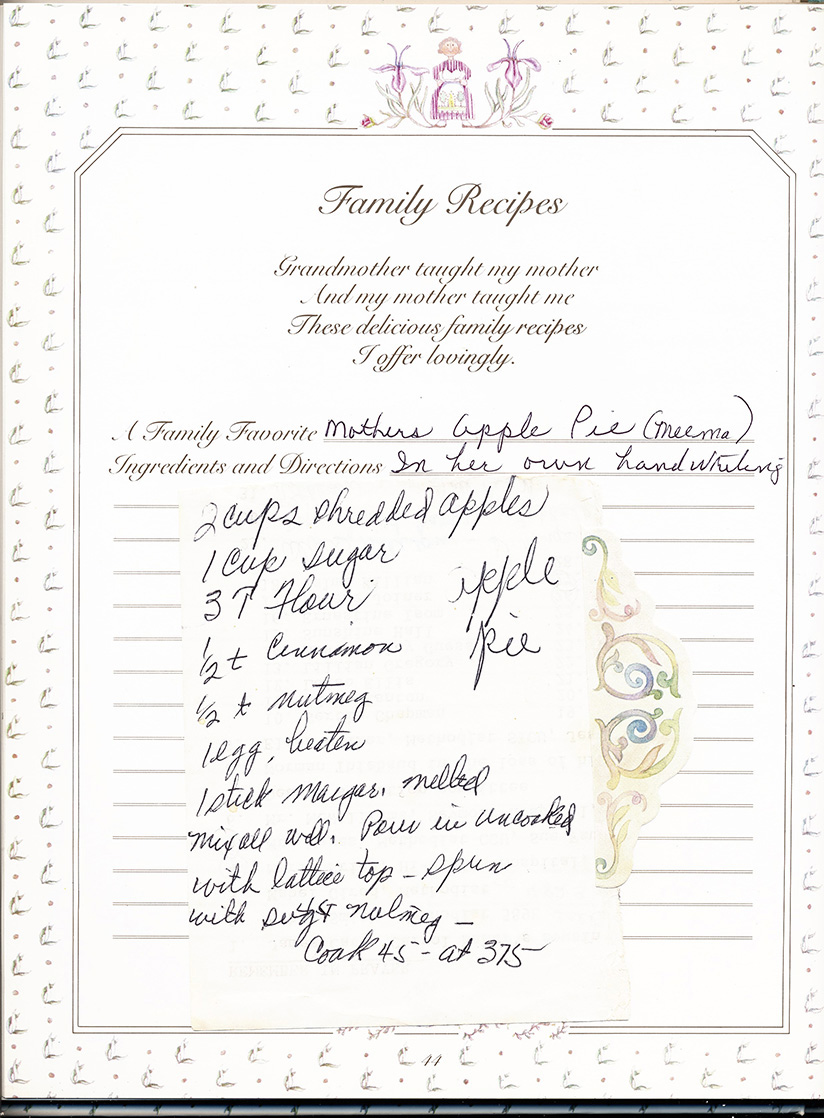 Family Recipes
Grandmother taught my mother
And my mother taught me
These delicious family recipes
I offer lovingly.
A Family Favorite Mothers Apple Pie (Meema)
Ingredients and Directions In her own handwriting
2 cups shredded apples
1 Cup sugar
apple
3 T Flour
pie
1/2 t Cinnamon
1/2 t nutmeg
1 egg, beaten
1 stick Margar. melted
mix all well. Pour in uncooked
with lattice top -
with nutmeg -
Cook 45 - at 375
44